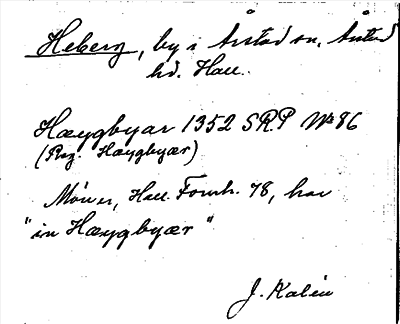 Heberg, by i Årstad sn. Årstad
hd. Hall.
Hæygbyar 1352 SRP No 86
(Reg. Haygbyær)
Møner, Hall. Fornh. 78, har
"in Hæygbyær"
J. Kalén